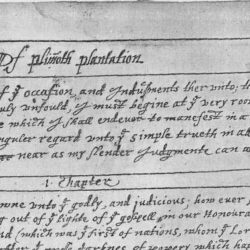 Of plimoth plantation
of yͤ occasion, and Indusments ther unto; th
uly unfould, I must begine at yͤ very roo
e which I shall endevor to manefest in a
nguler regard unto yͤ simple trueth in al
near as my slender Judgmente can a
1. Chapter
owne unto yͤ godly, and judicious; how ever s
g out of yͤ light of yͤ gospell in our Honoura
which was yͤ first of nations, whom yͤ Lor
darknes of popery which had